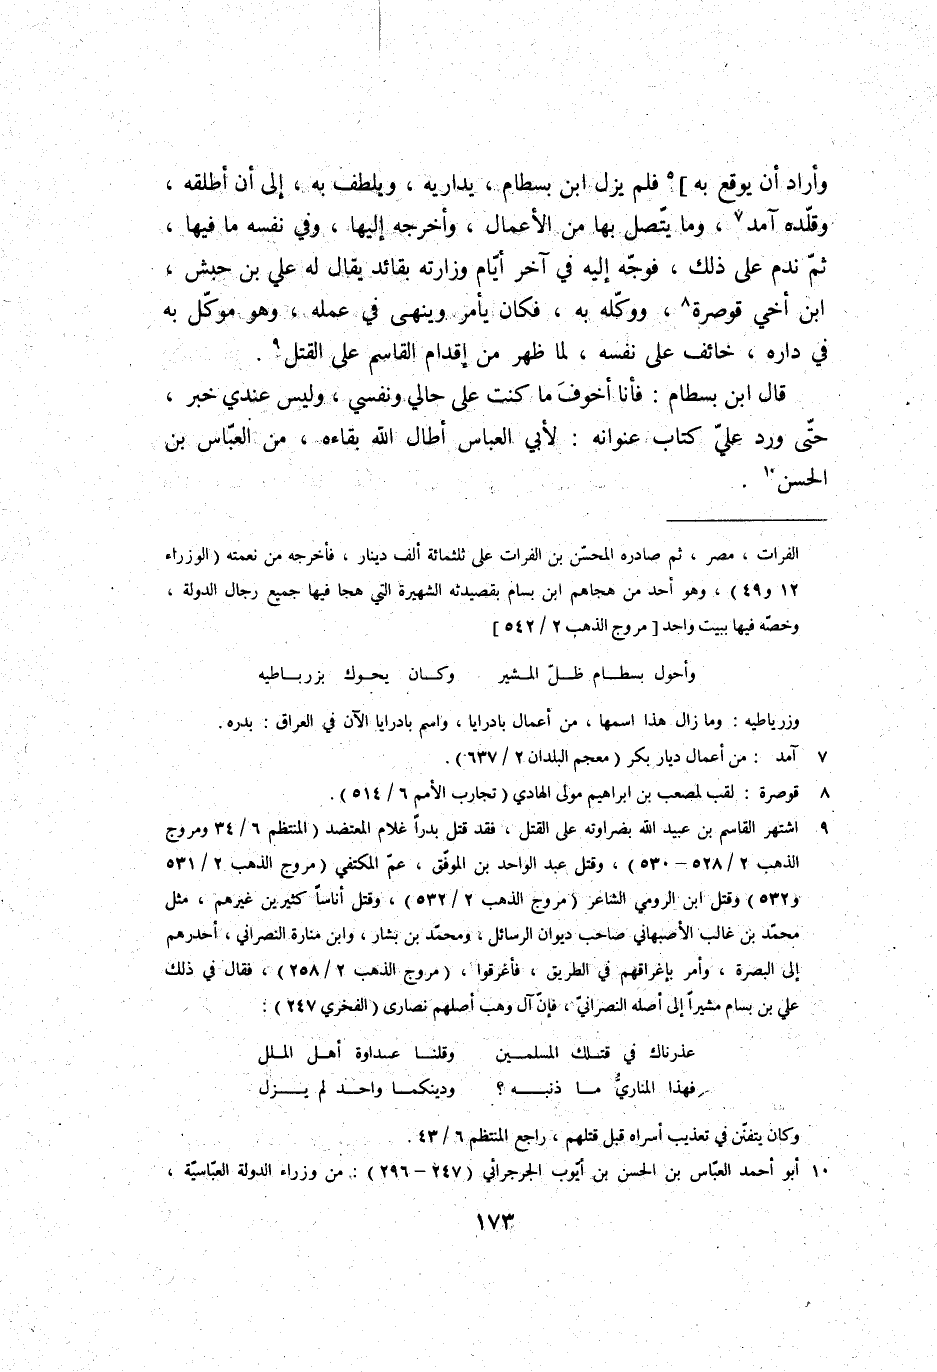 وأراد أن يوقع به ]٥ فلم يزل ابن بسطام ، يداريه ، ويلطف به ، إلى أن أطلقه ،
وقلّده آمد٧ ، وما يتّصل بها من الأعمال ، وأخرجه إليها ، وفي نفسه ما فيها ،
ثمّ ندم على ذلك ، فوجّه إليه في آخر أيّام وزارته بقائد يقال له علي بن حبش ،
ابن أخي قوصرة٨ ، ووكّله به ، فكان يأمر وينهى في عمله ، وهو موكّل به
في داره ، خائف على نفسه ، لما ظهر من إقدام القاسم على القتل٩ .
قال ابن بسطام : فأنا أخوفَ ما كنت على حالي ونفسي ، وليس عندي خبر ،
حتّى ورد عليّ كتاب عنوانه : لأبي العباس أطال الله بقاءه ، من العبّاس بن
الحسن١٠ .
الفرات ، مصر ، ثم صادره المحسّن بن الفرات على ثلثمائة ألف دينار ، فأخرجه من نعمته ( الوزراء
١٢ و٤٩ ) ، وهو أحد من هجاهم ابن بسام بقصيدته الشهيرة التي هجا فيها جميع رجال الدولة ،
وخصّه فيها ببيت واحد [ مروج الذهب ٢ / ٥٤٢ ]
وأحول بسطـام ظلّ المشير وكـان يحوك بزرباطيه
وزرباطيه : وما زال هذا اسمها ، من أعمال بادرايا ، واسم بادرايا الآن في العراق : بدره .
٧ آمد : من أعمال ديار بكر ( معجم البلدان ٢ / ٦٣٧ ) .
٨ قوصرة : لقب لمصعب بن ابراهيم مولى الهادي ( تجارب الأمم ٦ / ٥١٤ ) .
٩ اشتهر القاسم بن عبيد الله بضراوته على القتل ، فقد قتل بدراً غلام المعتضد ( المنتظم ٦ / ٣٤ ومروج
الذهب ٢ / ٥٢٨ – ٥٣٠ ) ، وقتل عبد الواحد بن الموفّق ، عمّ المكتفي ( مروج الذهب ٢ / ٥٣١
و٥٣٢ ) وقتل ابن الرومي الشاعر ( مروج الذهب ٢ / ٥٣٢ ) ، وقتل أناساً كثيرين غيرهم ، مثل
محمّد بن غالب الأصبهاني صاحب ديوان الرسائل ، ومحمّد بن بشار ، وابن منارة النصراني ، أحدرهم
إلى البصرة ، وأمر بإغراقهم في الطريق ، فأغرقوا ، ( مروج الذهب ٢ / ٢٥٨ ) ، فقال في ذلك
علي بن بسام مشيراً إلى أصله النصرانيّ ، فإنّ آل وهب أصلهم نصارى ( الفخري ٢٤٧ ) :
عذرناك في قتلك المسلمين وقلنا عداوة أهل الملل
فهذا المناريُّ ما ذنبه ؟ ودينكما واحد لم يزل
وكان يتفنّن في تعذيب أسراه قبل قتلهم ، راجع المنتظم ٦ / ٤٣ .
١٠ أبو أحمد العبّاس بن الحسن بن أيّوب الجرجرائي ( ٢٤٧ – ٢٩٦ ) : من وزراء الدولة العبّاسيّة ،
١٧٣